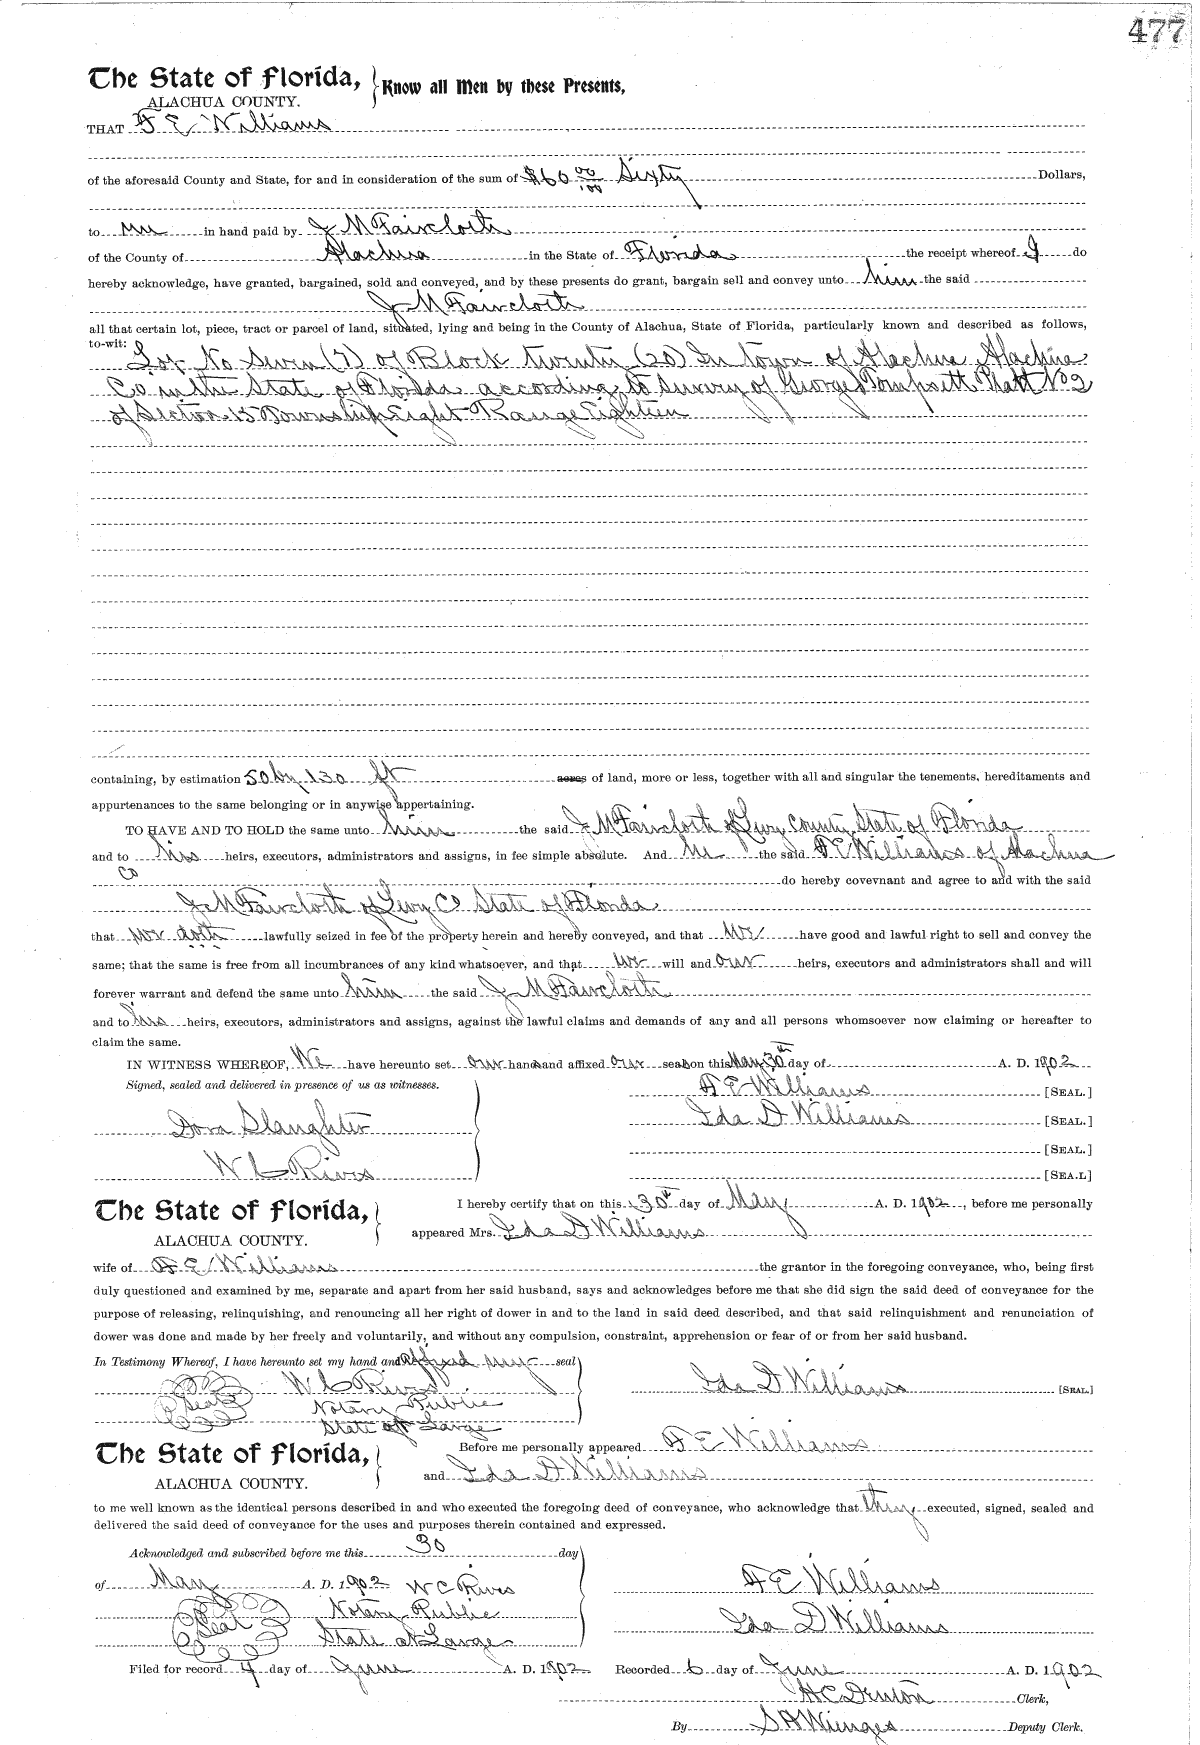 477
The State of Florida, } Know all Men by these Presents,
ALACHUA COUNTY.
THAT F E Williams
of the aforesaid County and State, for and in consideration of the sum of $60 00/100 Sixty Dollars,
to me in hand paid by J M Faircloth
of the County of Alachua in the State of Florida the receipt whereof I do
hereby acknowledge, have granted, bargained, sold and conveyed, and by these presents do grant, bargain sell and convey unto him the said
J M Faircloth
all that certain lot, piece, tract or parcel of land, situated, lying and being in the County of Alachua, State of Florida, particularly known and described as follows,
to-wit: Lot No Seven (7) of Block twenty (20) In town of Alachua Alachua
Co in the State of Florida according to Survey of George Platt No 2
of Section 15 Township Eight Range Eighteen
containing, by estimation 50 by 130 ft acres of land, more or less, together with all and singular the tenements, hereditaments and
appurtenances to the same belonging or in anywise appertaining.
TO HAVE AND TO HOLD the same unto him the said J M Faircloth of Levy County State of Florida
and to his heirs, executors, administrators and assigns, in fee simple absolute. And we the said F E Williams of Alachua
Co do hereby covevnant and agree to and with the said
J M Faircloth of Levy Co State of Florida
that we are lawfully seized in fee of the property herein and hereby conveyed, and that we have good and lawful right to sell and convey the
same; that the same is free from all incumbrances of any kind whatsoever, and that we will and our heirs, executors and administrators shall and will
forever warrant and defend the same unto him the said J M Faircloth
and to his heirs, executors, administrators and assigns, against the lawful claims and demands of any and all persons whomsoever now claiming or hereafter to
claim the same.
IN WITNESS WHEREOF, We have hereunto set our hands and affixed our seals on this May 30th day of A. D. 1902
Signed, sealed and delivered in presence of us as witnesses.
F E Williams [SEAL.]
Ida D Williams [SEAL.]
Dora Slaughter
[SEAL.]
W C Rives
[SEA.L]
The State of Florida, }
ALACHUA COUNTY.
I hereby certify that on this 30th day of May A. D. 1902, before me personally
appeared Mrs. Ida D Williams
wife of F E Williams the grantor in the foregoing conveyance, who, being first
duly questioned and examined by me, separate and apart from her said husband, says and acknowledges before me that she did sign the said deed of conveyance for the
purpose of releasing, relinquishing, and renouncing all her right of dower in and to the land in said deed described, and that said relinquishment and renunciation of
dower was done and made by her freely and voluntarily, and without any compulsion, constraint, apprehension or fear of or from her said husband.
In Testimony Whereof, I have hereunto set my hand and affixed my seal
W C Rives
Ida D Williams [SEAL.]
Seal
Notary Public
State at Large
The State of Florida, }
ALACHUA COUNTY.
Before me personally appeared F E Williams
and Ida D Williams
to me well known as the identical persons described in and who executed the foregoing deed of conveyance, who acknowledge that they executed, signed, sealed and
delivered the said deed of conveyance for the uses and purposes therein contained and expressed.
Acknowledged and subscribed before me this 30 day
of May A. D. 1902 W C Rives
F E Williams
Seal
Notary Public
State at Large
Ida D Williams
Filed for record 4 day of June A. D. 1902 Recorded 6 day of June A. D. 1902
H C Denton Clerk,
By S H Wienges Deputy Clerk.